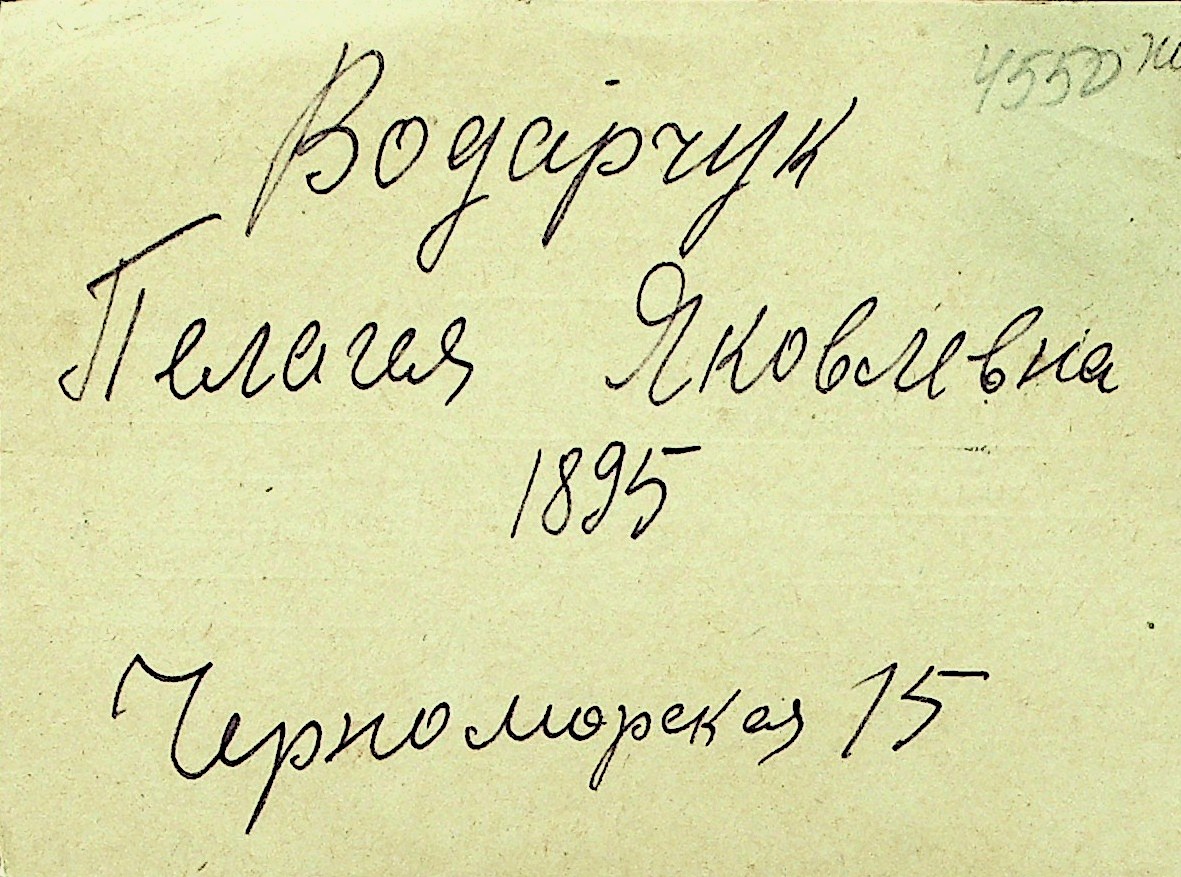 4550
Водарчук
Пелагея Яковлевна
1895
Черноморская 15